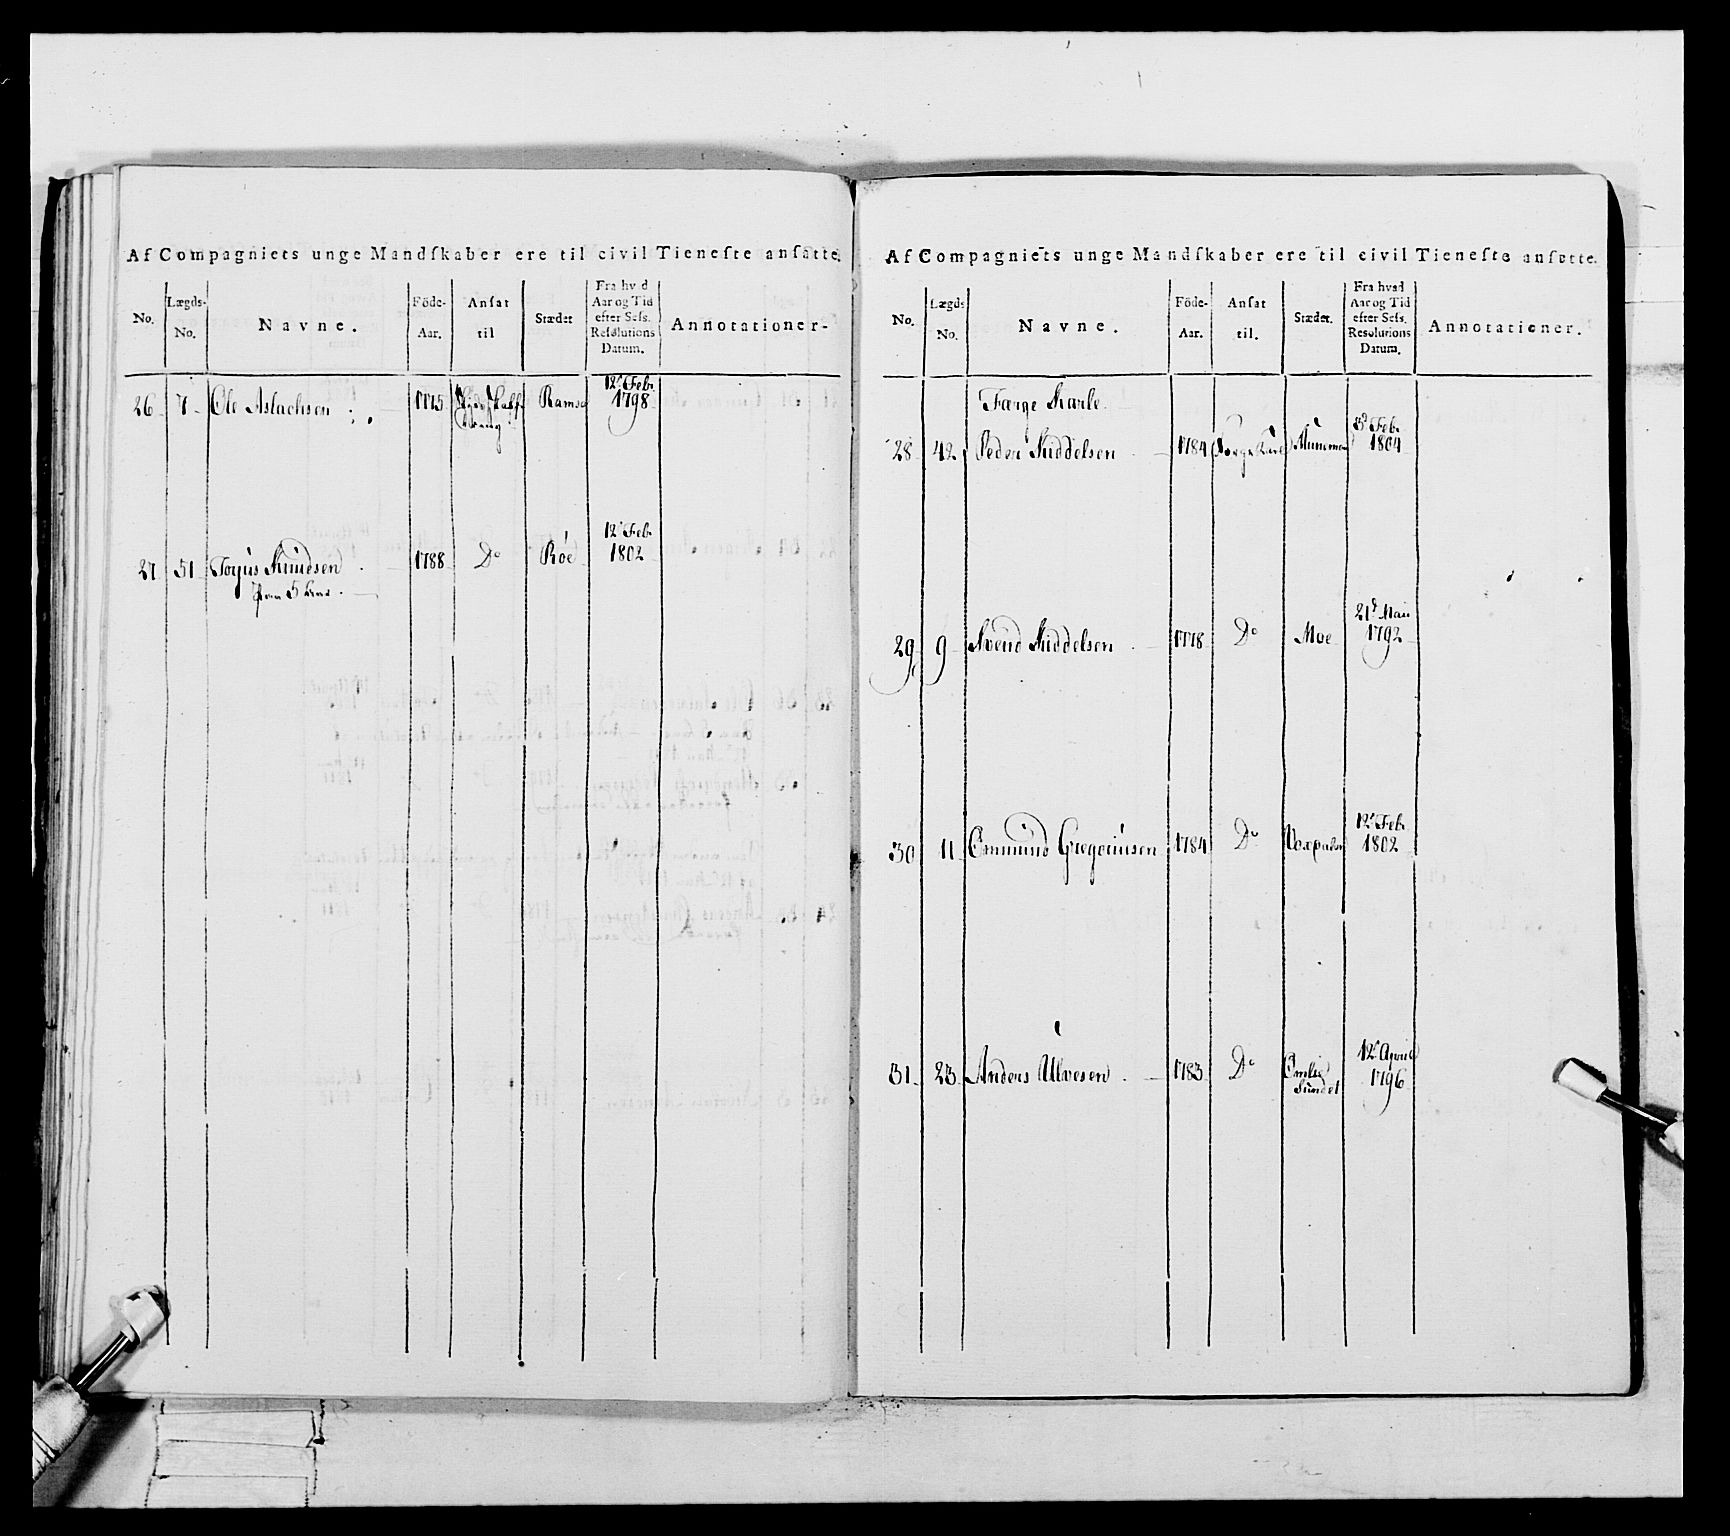 Af Compagniets unge Mandſkaber ere til civil Tieneſte anſatte.
No. Lægds-No. Navne. Föde-Aar. Anſat til Stædet Fra hvad Aar og Tid efter Seſs. Reſolutions Datum. Annotationer-
26 7 Ole Aslachsen 1775 12t Feb. 1798
27 51 Knudsen 1788 Do Röe 12t Feb. 1802
Af Compagniets unge Mandſkaber ere til civil Tieneſte anſatte.
No. Lægds No. Navne. Föde-Aar. Anſat til. Stædet. Fra hvad Aar og Tid efter Seſs. Resolutions Datum. Annotationer.
Færge Karle
28 42 Peder Siddelsen 1784 Færge Karl 3d Feb. 1804
29 9 Svend Siddelsen 1778 Do Moe 21d Mai 1792
30 11 Ommund Gregoriusen 1784 Do 12t Feb. 1802
31 23 Anders Ulvesen 1783 Do Omlie Sundet 12t April 1796